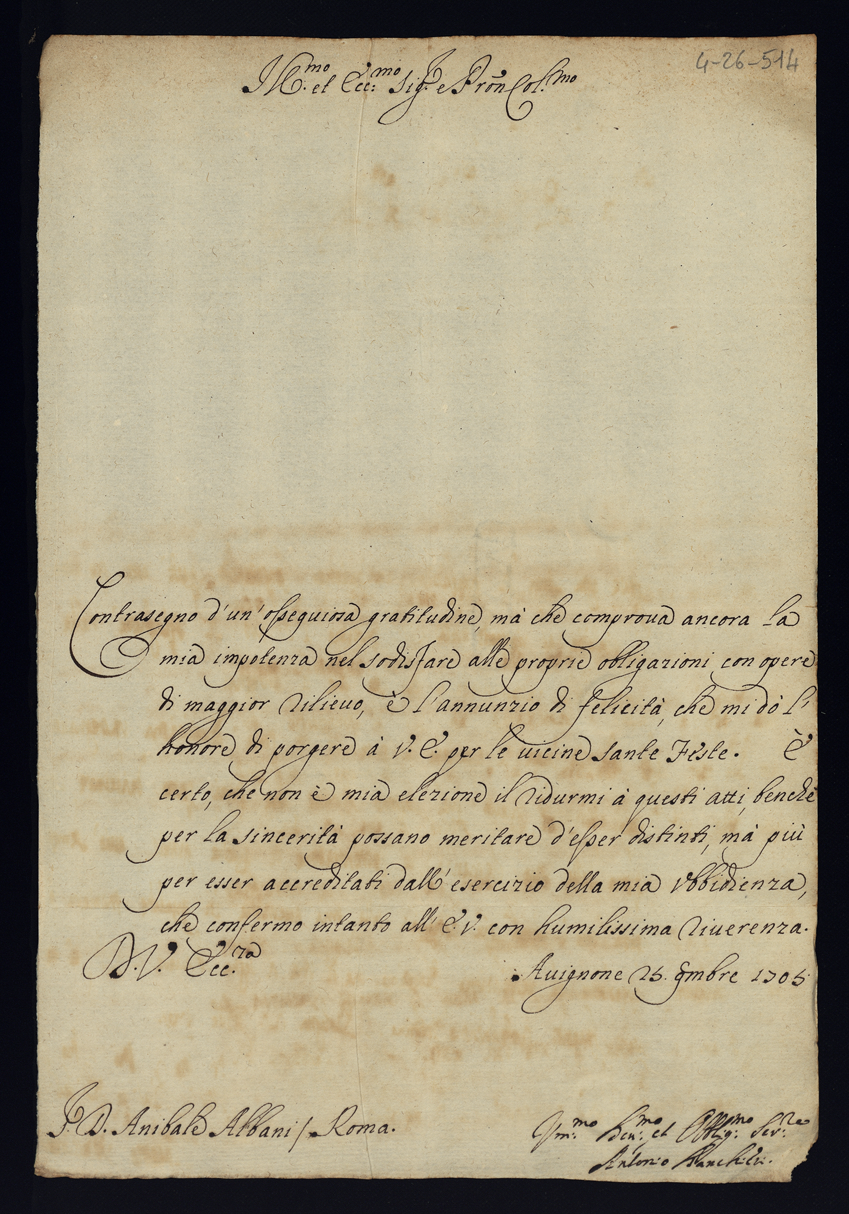 4-26-514
Ill.mo et Ecc.mo Sig.r e Prōn Col.mo
Contrasegno d'un'ossequiosa gratitudine, mà che comproua ancora la
mia impotenza nel sodisfare alle proprie obligazioni con opere
di maggior rilieuo, è l'annunzio di felicità, che mi dò l'
honore di porgere à V. E. per le uicine Sante Feste. È
certo, che non è mia elezione il ridurmi à questi atti, benche
per la sincerità possano meritare d'esser distinti, mà più
per esser accreditati dall'esercizio della mia Vbbidienza,
che confermo intanto all'E. V. con humilissima riuerenza.
D. V. Ecc.za
Auignone 25. 9mbre 1705
S.r D. Anibale Albani / Roma.
Vm.mo Deu.mo et Obblig.mo Ser.re
Antonio